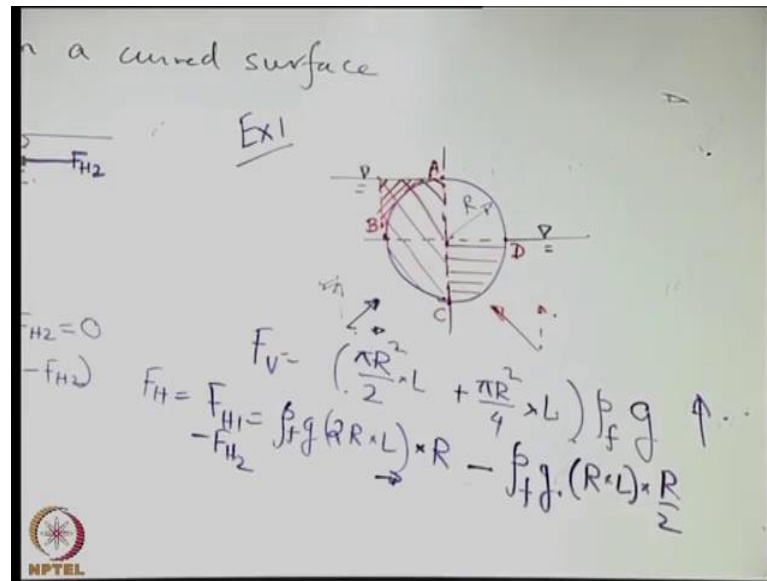 n a curved surface
Ex1
F_{H2}
A
R
B
D
C
F_{H2} = 0
- F_{H2})
F_V = (πR²/2 × L + πR²/4 × L) ρ_f g ↑
F_H = F_{H1} - F_{H2} = ρ_f g (2R × L) × R - ρ_f g. (R × L) × R/2
NPTEL